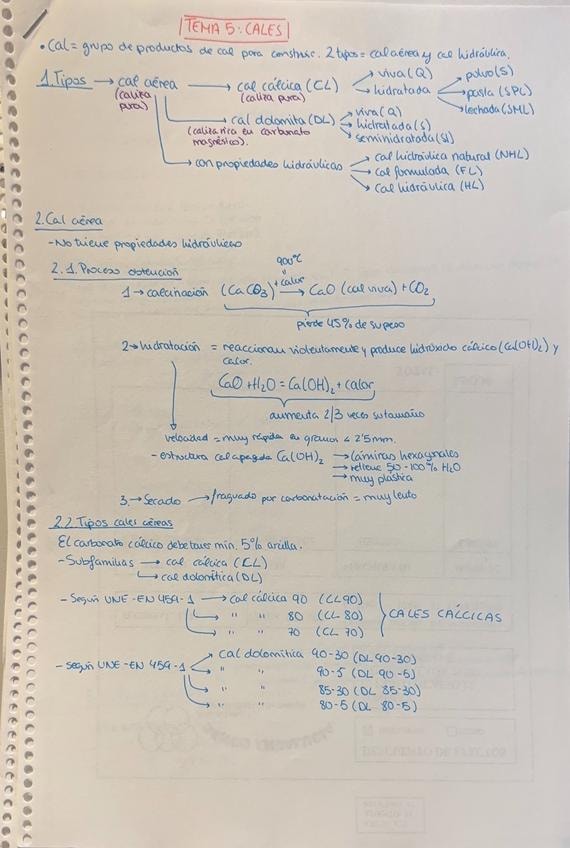 TEMA 5: CALES
• Cal = grupo de productos de cal para construir. 2 tipos = cal aérea y cal hidráulica.
1. Tipos → cal aérea (caliza pura) → cal cálcica (CL) (caliza pura) → viva (Q)
→ hidratada → polvo (S)
→ pasta (SPL)
→ lechada (SML)
→ cal dolomita (DL) (caliza rica en carbonato magnésico). → viva (Q)
→ hidratada (S)
→ semihidratada (S1)
→ con propiedades hidráulicas → cal hidráulica natural (NHL)
→ cal formulada (FL)
→ cal hidráulica (HL)
2. Cal aérea
- No tiene propiedades hidráulicas
2.1. Proceso obtención
1 → calcinación (CaCO₃) + calor = 900ºC → CaO (cal viva) + CO₂
pierde 45% de su peso
2 → hidratación = reaccionan violentamente y produce hidróxido cálcico (Ca(OH)₂) y
calor.
CaO + H₂O = Ca(OH)₂ + calor
aumenta 2/3 veces su tamaño
velocidad = muy rápida en granos < 2'5mm.
- estructura cal apagada Ca(OH)₂ → láminas hexagonales
→ retiene 50-100% H₂O
→ muy plástica
3. → Secado → fraguado por carbonatación = muy lento
2.2. Tipos cales aéreas
El carbonato cálcico debe tener mín. 5% arcilla.
- Subfamilias → cal cálcica (CL)
→ cal dolomítica (DL)
- Según UNE-EN 459-1 → cal cálcica 90 (CL 90)
→ " " 80 (CL 80)
→ " " 70 (CL 70)
CALES CÁLCICAS
- Según UNE-EN 459-1 → Cal dolomítica 90-30 (DL 90-30)
→ " " 90-5 (DL 90-5)
→ " " 85-30 (DL 85-30)
→ " " 80-5 (DL 80-5)